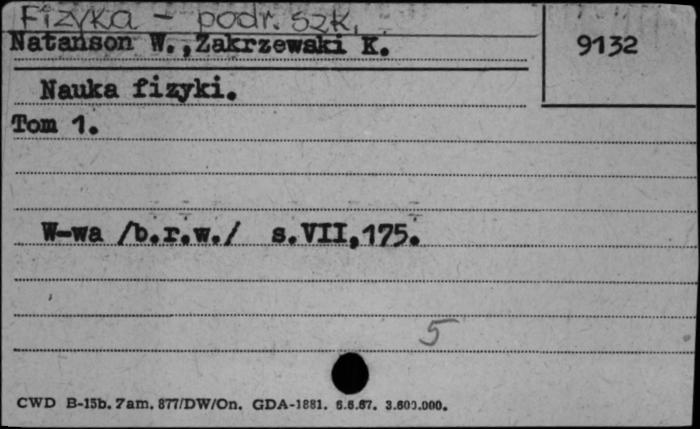 Fizyka - podr. szk.
Natanson W.,Zakrzewski K.
9132
Nauka fizyki.
Tom 1.
W-wa /b.r.w./ s.VII,175.
5
CWD B-15b. Zam. 877/DW/On. GDA-1881. 6.6.67. 3.600.000.